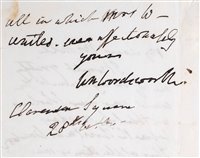 all in which Mrs W—
unites. ever affectionately
yours
Wm Wordsworth
Square
28th